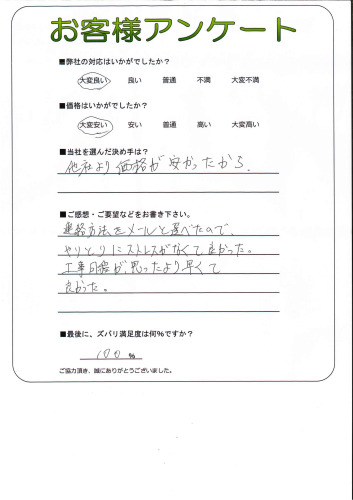 お客様アンケート
■弊社の対応はいかがでしたか？
大変良い 良い 普通 不満 大変不満
■価格はいかがでしたか？
大変安い 安い 普通 高い 大変高い
■当社を選んだ決め手は？
他社より価格が安かったから、
■ご感想・ご要望などをお書き下さい。
連絡方法をメールと選べたので、
やりとりにストレスがなくて良かった。
工事日程が、思ったより早くて
良かった。
■最後に、ズバリ満足度は何%ですか？
100 %
ご協力頂き、誠にありがとうございました。